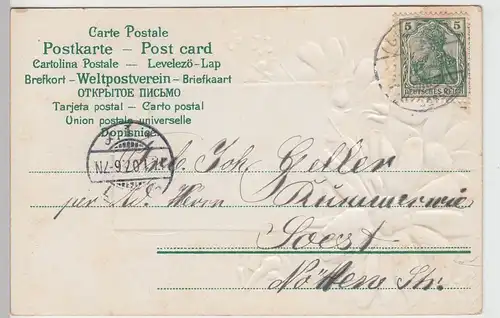 Carte Postale
Postkarte – Post card
Cartolina Postale — Levelezö-Lap
Brefkort - Weltpostverein - Briefkaart
ОТКРЫТОЕ ПИСЬМО
Tarjeta postal — Carto postal
Union postale universelle
Dopisnice
5 5
DEUTSCHES REICH
07.6-7N
Joh. Geller
per Herrn
Soest
Str.